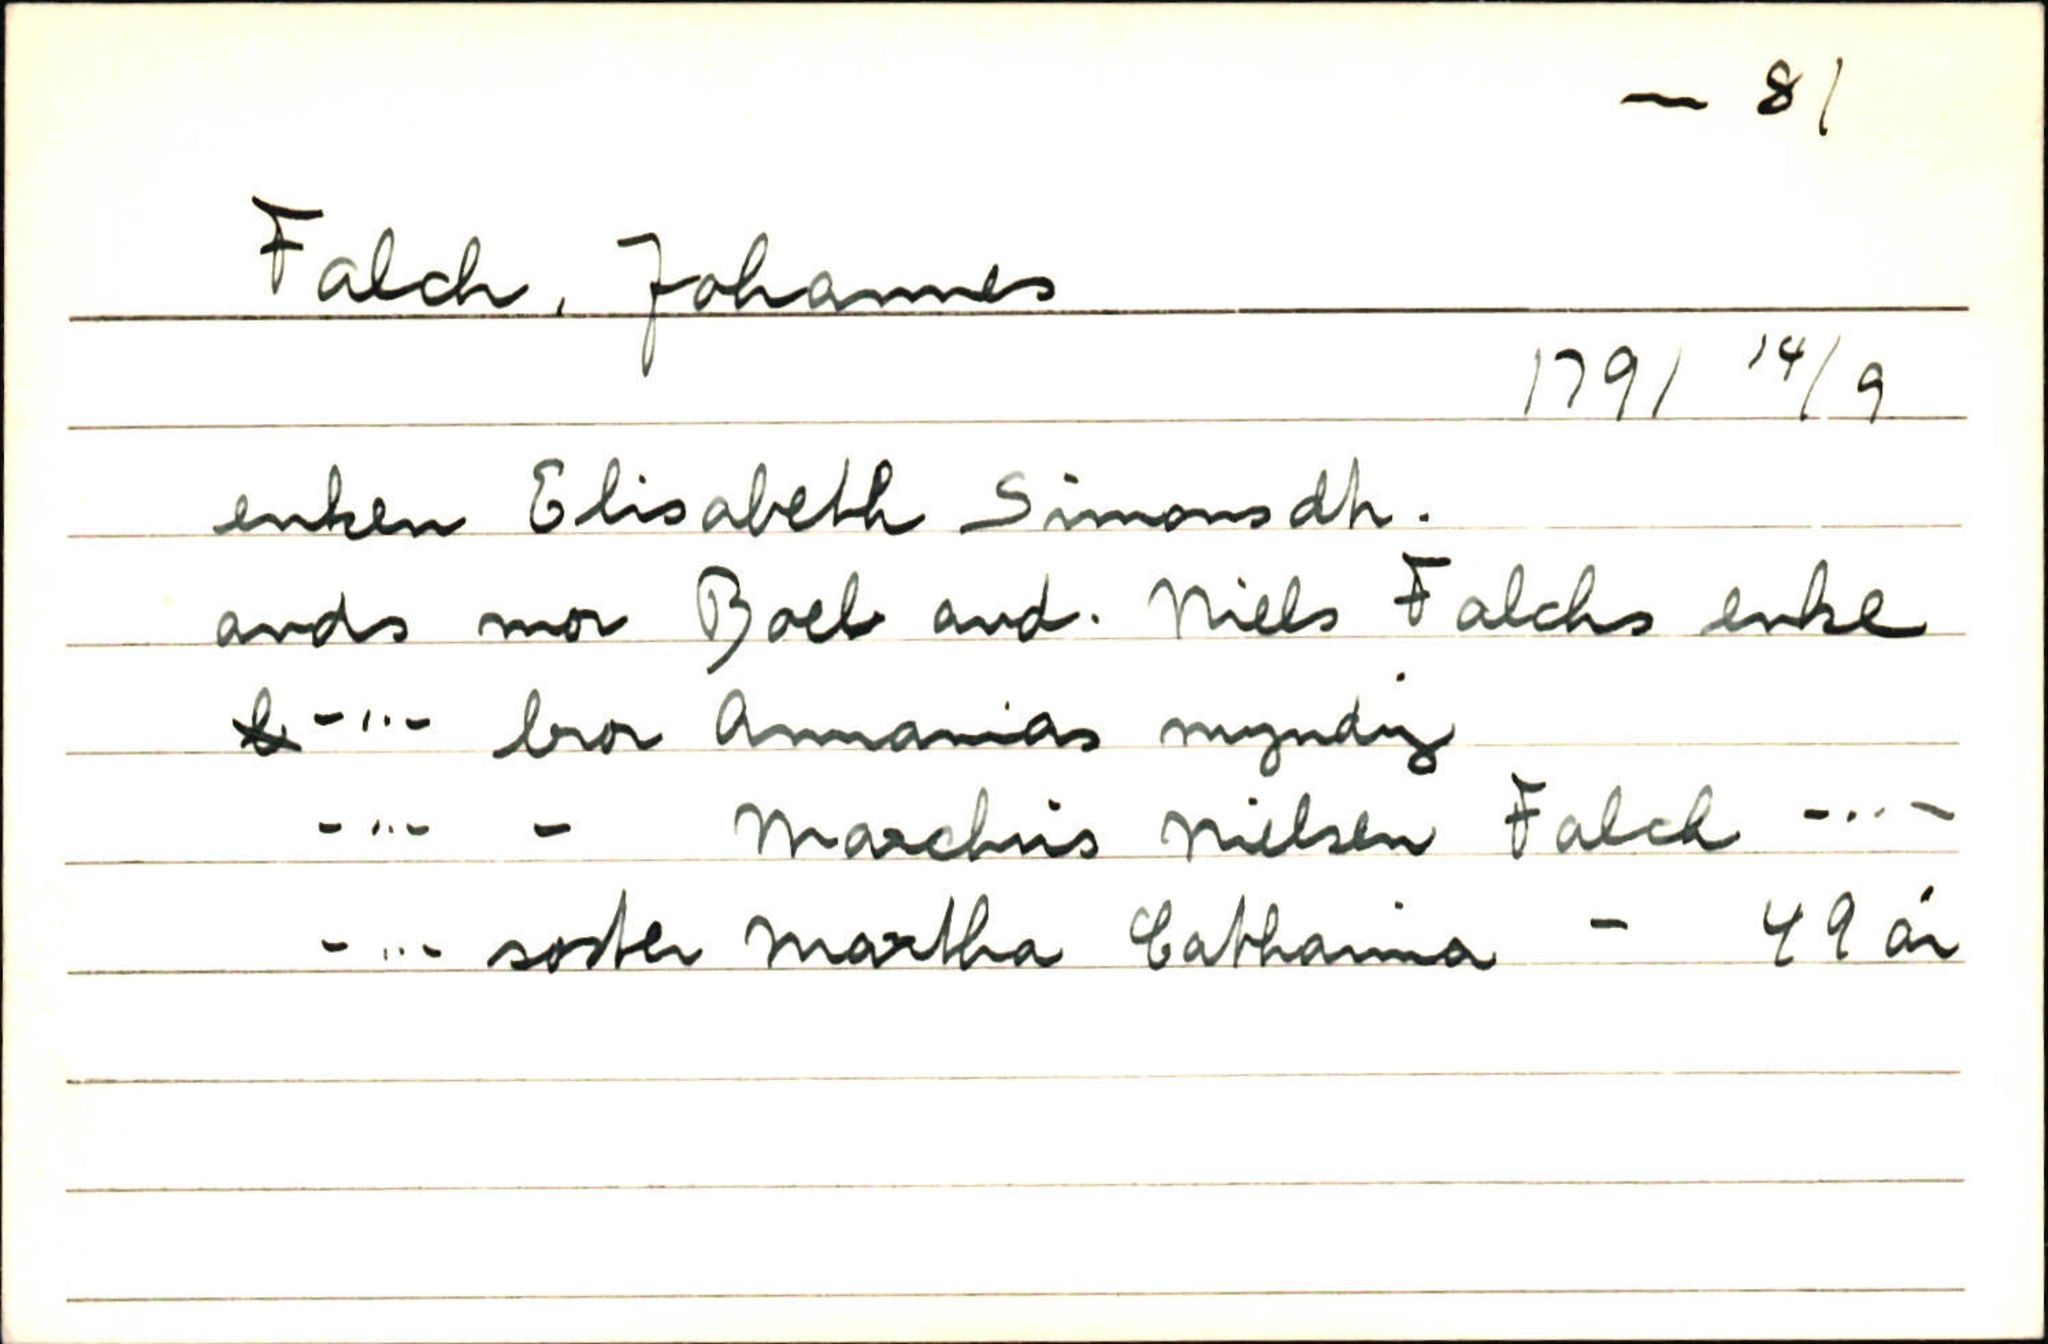 — 81
Falch, Johannes
1791 14/9
enken Elisabeth Simonsdtr.
avds mor Boel avd. Niels Falchs enke
-"- bror Annanias myndig
-"- - Marchus Nielsen Falch -"-
-"- søster Martha Catharina - 49 år